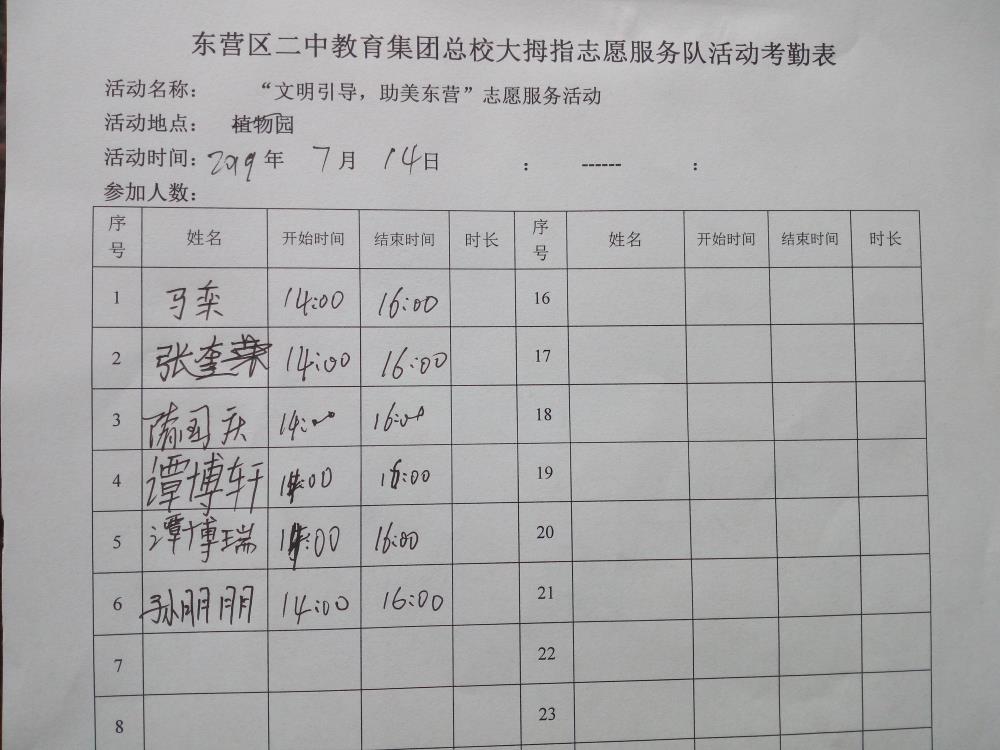 东营区二中教育集团总校大拇指志愿服务队活动考勤表
活动名称： “文明引导，助美东营”志愿服务活动
活动地点： 植物园
活动时间：2019年 7月 14日 ： ------ ：
参加人数：
序号 姓名 开始时间 结束时间 时长 序号 姓名 开始时间 结束时间 时长
1 马栾 14:00 16:00 16
2 张奎 14:00 16:00 17
3 隋国庆 14:00 16:00 18
4 谭博轩 14:00 16:00 19
5 谭博瑞 14:00 16:00 20
6 孙朋朋 14:00 16:00 21
7 22
8 23